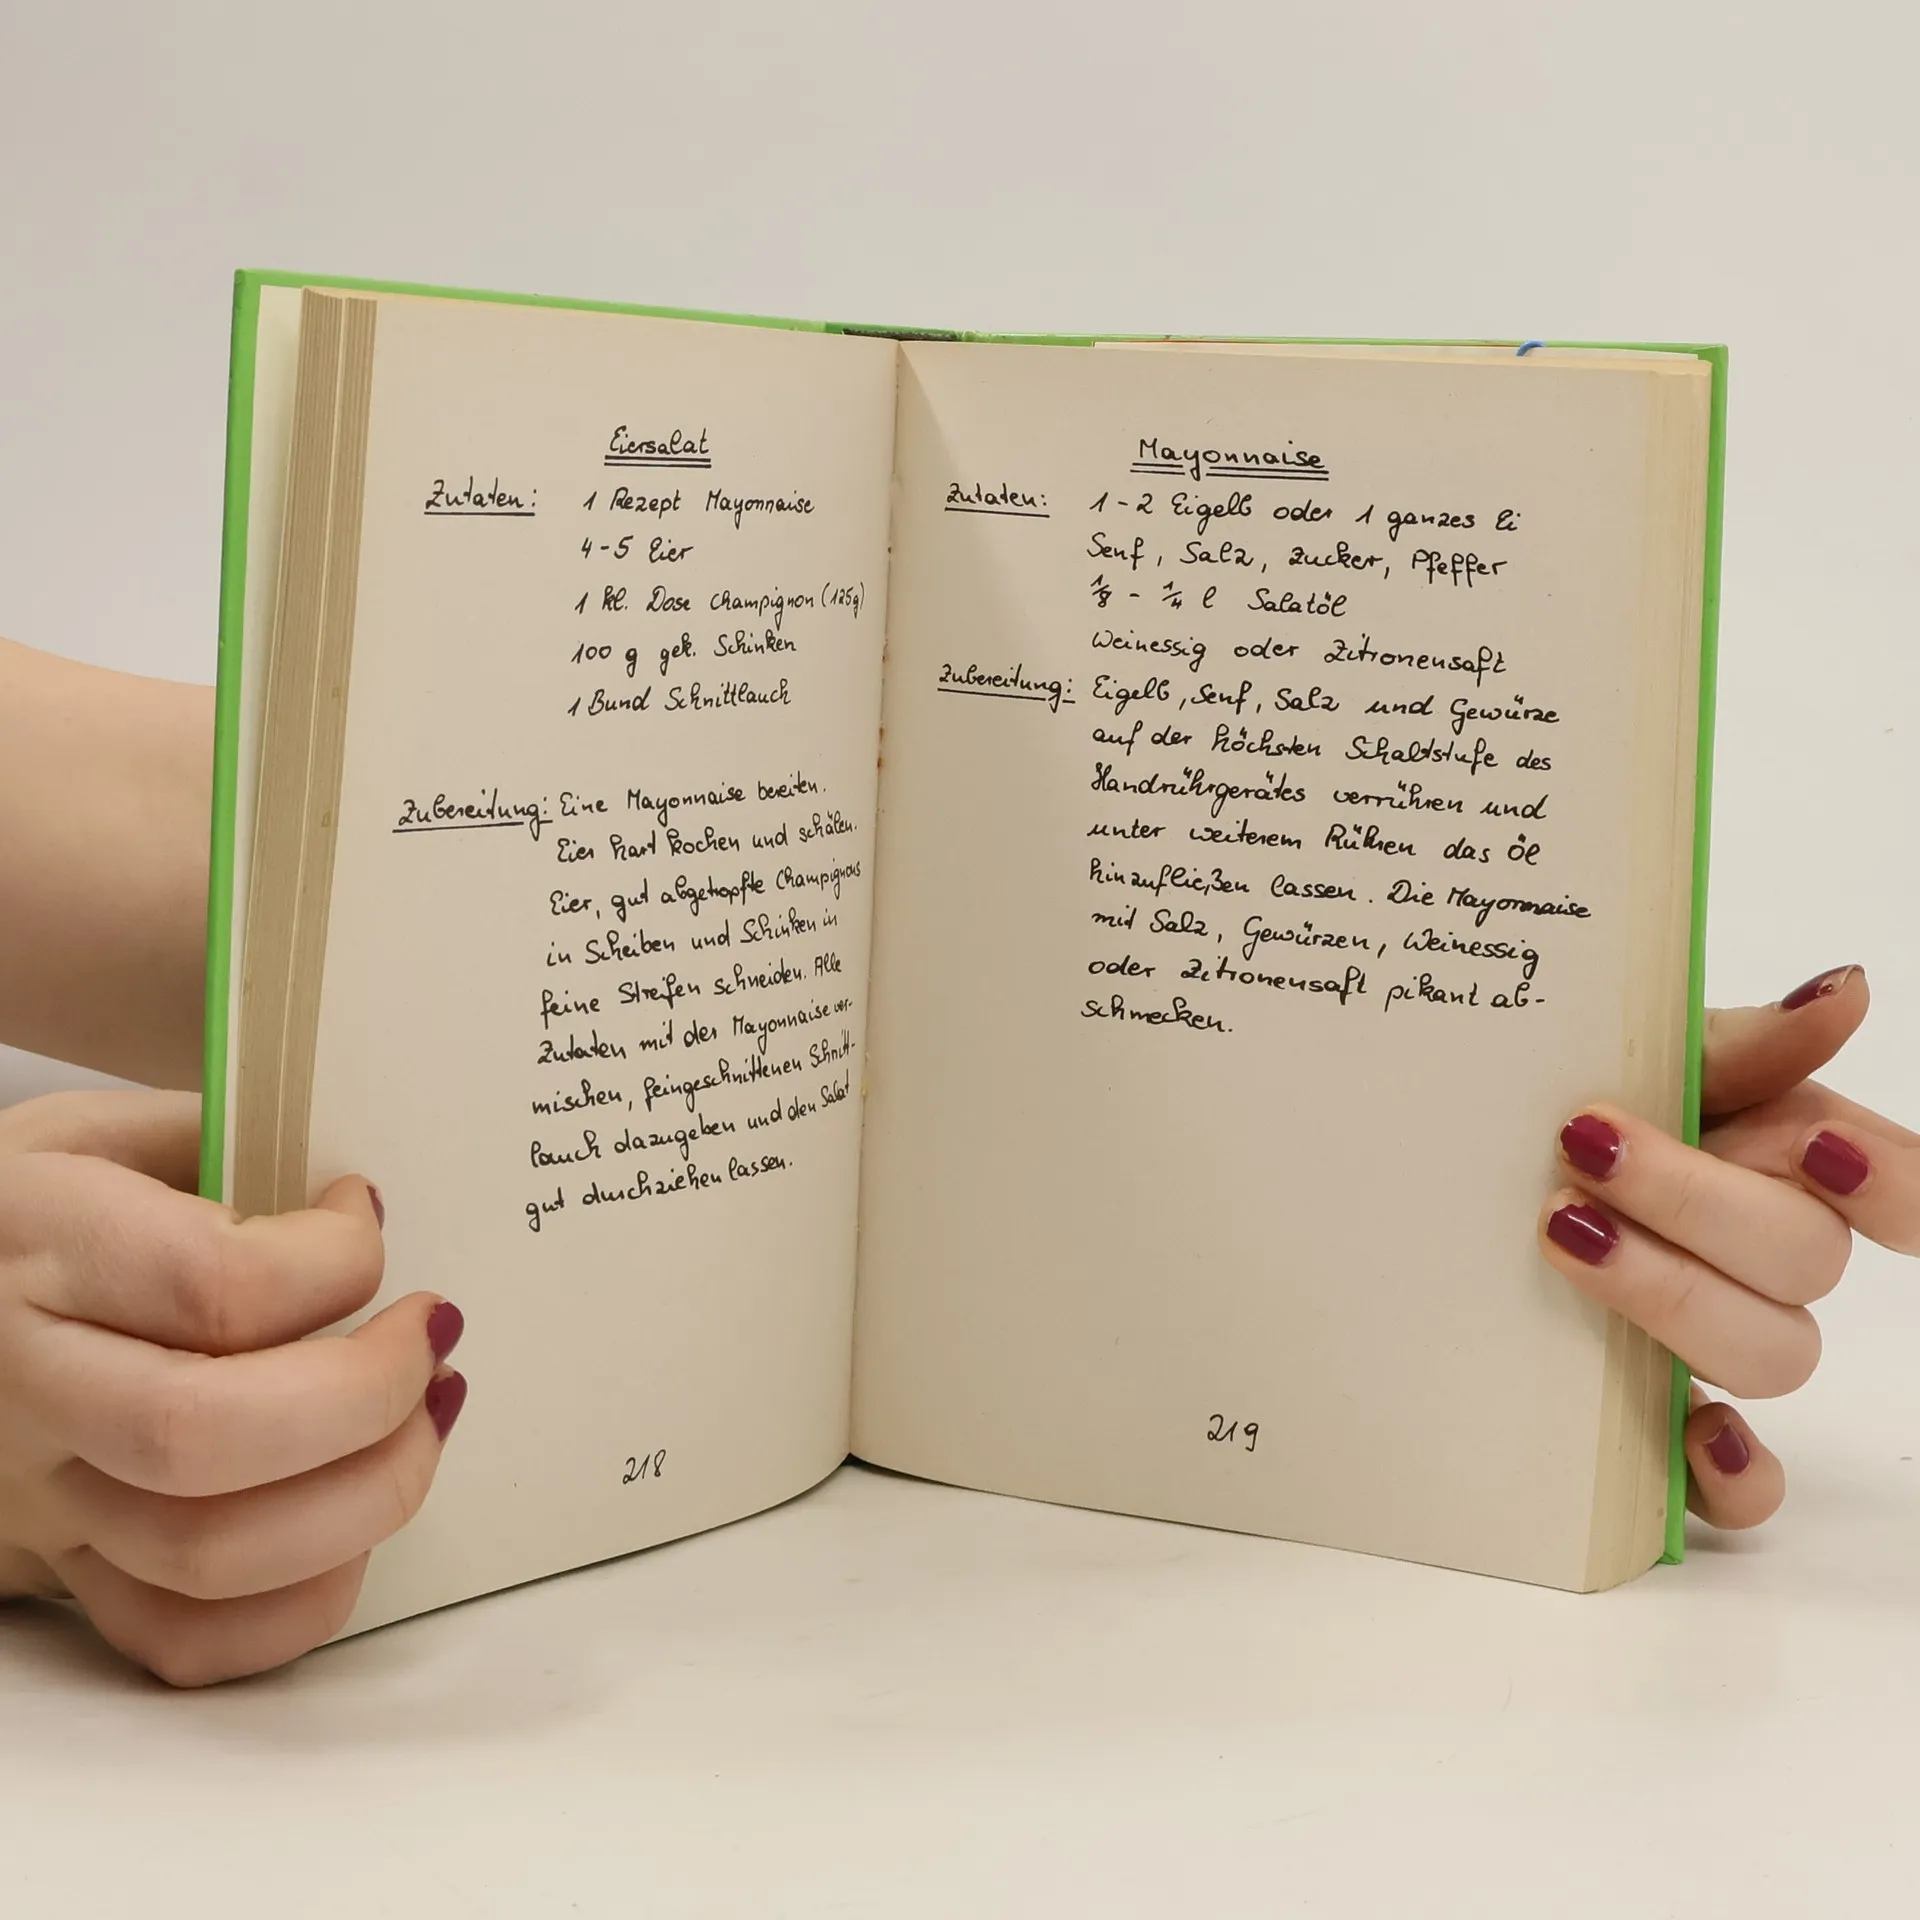 Eiersalat
Zutaten: 1 Rezept Mayonnaise
4-5 Eier
1 kl. Dose Champignon (125g)
100 g gek. Schinken
1 Bund Schnittlauch
Zubereitung: Eine Mayonnaise bereiten.
Eier hart kochen und schälen.
Eier, gut abgetropfte Champignons
in Scheiben und Schinken in
feine Streifen schneiden. Alle
Zutaten mit der Mayonnaise ver-
mischen, feingeschnittenen Schnitt-
lauch dazugeben und den Salat
gut durchziehen lassen.
218
Mayonnaise
Zutaten: 1-2 Eigelb oder 1 ganzes Ei
Senf, Salz, Zucker, Pfeffer
1/8 - 1/4 l Salatöl
Weinessig oder Zitronensaft
Zubereitung: Eigelb, Senf, Salz und Gewürze
auf der höchsten Schaltstufe des
Handrührgerätes verrühren und
unter weiterem Rühren das Öl
hinzufließen lassen. Die Mayonnaise
mit Salz, Gewürzen, Weinessig
oder Zitronensaft pikant ab-
schmecken.
219